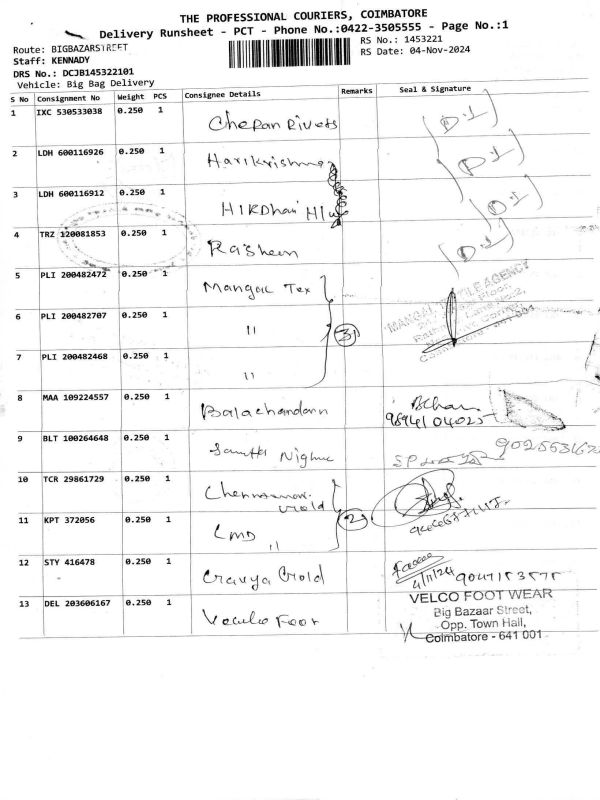 THE PROFESSIONAL COURIERS, COIMBATORE
Delivery Runsheet - PCT - Phone No.:0422-3505555 - Page No.:1
Route: BIGBAZARSTREET
RS No.: 1453221
Staff: KENNADY
RS Date: 04-Nov-2024
DRS No.: DCJB145322101
Vehicle: Big Bag Delivery
S No Consignment No Weight PCS Consignee Details Remarks Seal & Signature
1 IXC 530533038 0.250 1 Cheran Rivets D.1
2 LDH 600116926 0.250 1 Harikrishna D.1
3 LDH 600116912 0.250 1 D.1
4 TRZ 120081853 0.250 1 Rasheen D.1
5 PLI 200482472 0.250 1 Mangal Tex
6 PLI 200482707 0.250 1 " 3
7 PLI 200482468 0.250 1 "
8 MAA 109224557 0.250 1 Balachandann
9894104025
9 BLT 100264648 0.250 1
10 TCR 29861729 0.250 1
11 KPT 372056 0.250 1 LMD " 2
12 STY 416478 0.250 1 Gold
4/11/24
13 DEL 203606167 0.250 1 Foot
VELCO FOOT WEAR
Big Bazaar Street,
Opp. Town Hall,
Coimbatore - 641 001